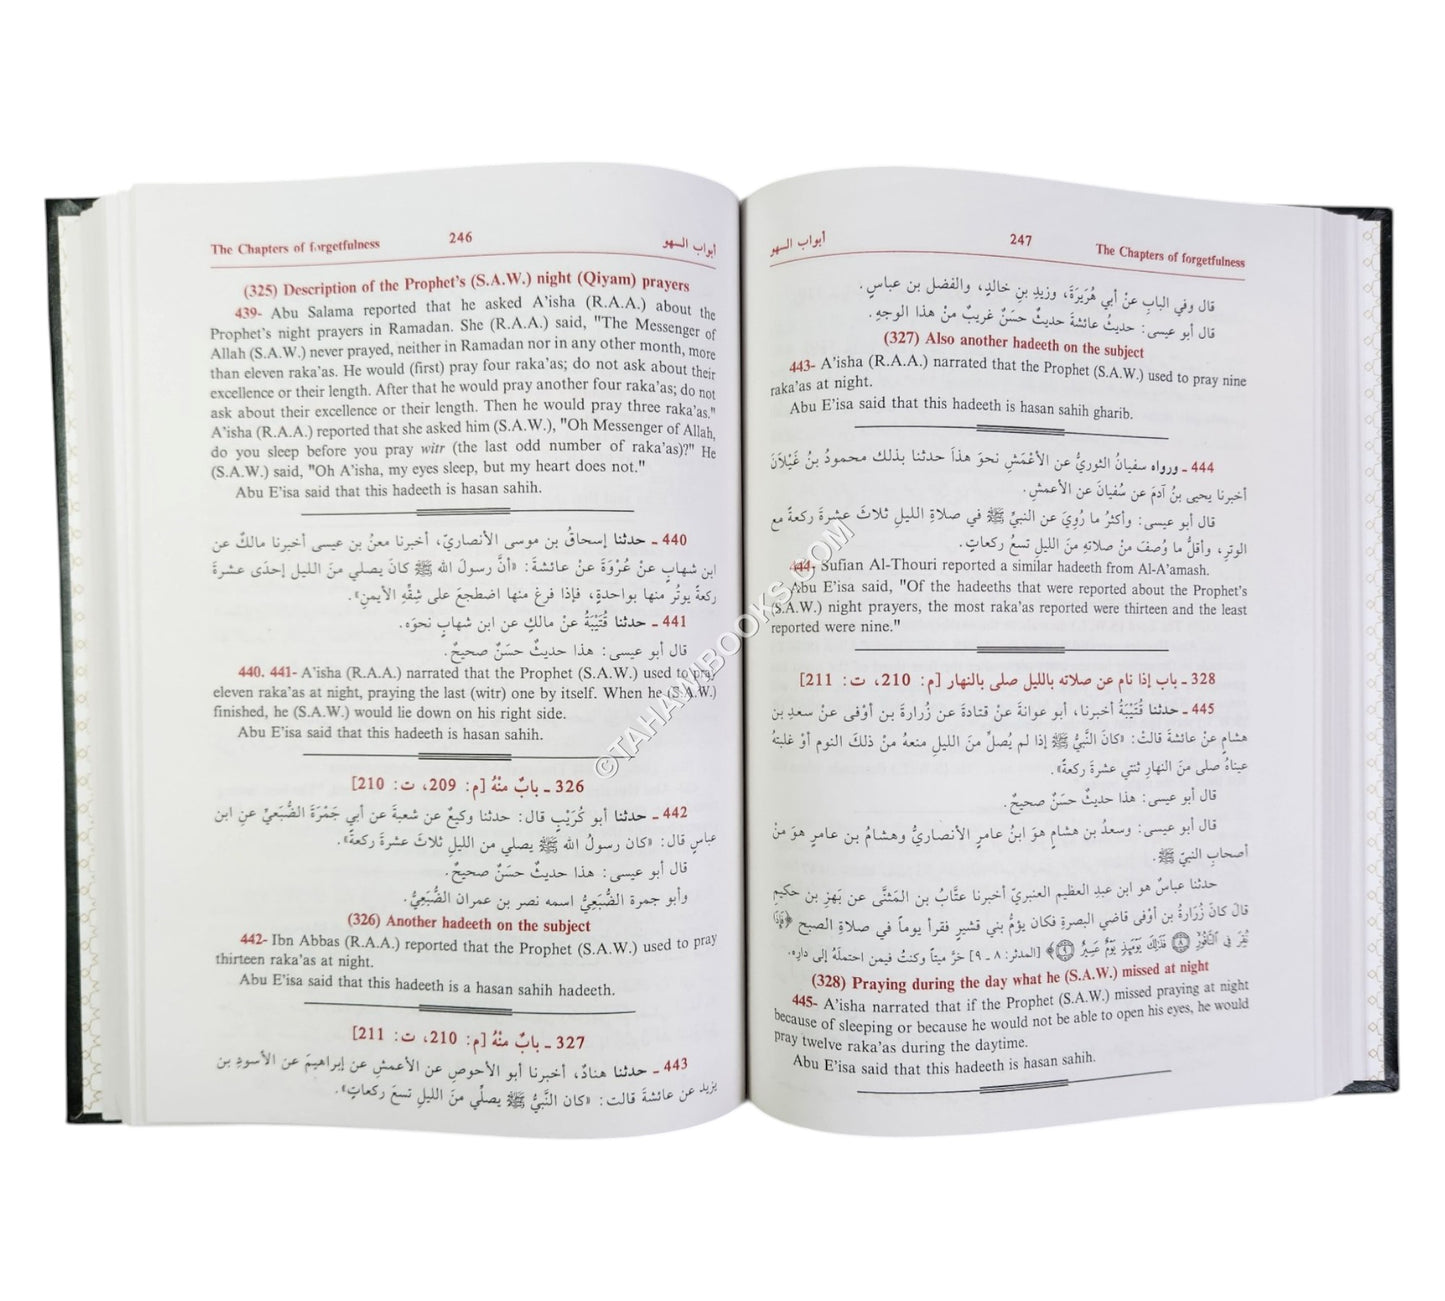 The Chapters of forgetfulness 246 أبواب السهو
(325) Description of the Prophet's (S.A.W.) night (Qiyam) prayers
439- Abu Salama reported that he asked A'isha (R.A.A.) about the
Prophet's night prayers in Ramadan. She (R.A.A.) said, "The Messenger of
Allah (S.A.W.) never prayed, neither in Ramadan nor in any other month, more
than eleven raka'as. He would (first) pray four raka'as; do not ask about their
excellence or their length. After that he would pray another four raka'as; do not
ask about their excellence or their length. Then he would pray three raka'as."
A'isha (R.A.A.) reported that she asked him (S.A.W.), "Oh Messenger of Allah,
do you sleep before you pray witr (the last odd number of raka'as)?" He
(S.A.W.) said, "Oh A'isha, my eyes sleep, but my heart does not."
Abu E'isa said that this hadeeth is hasan sahih.
440 ـ حدثنا إسحاقُ بن موسى الأنصاريّ، أخبرنا معنُ بن عيسى أخبرنا مالكٌ عن
ابن شهابٍ عنْ عُرْوَةَ عنْ عائشةَ: «أنَّ رسولَ الله ﷺ كانَ يصلي منَ الليل إحْدَى عشرةَ
ركعةً يوتُر منها بواحدةٍ، فإذا فرغ منها اضطجعَ على شِقِّهِ الأيمنِ».
441 ـ حدثنا قُتَيْبَةُ عنْ مالكٍ عن ابن شهابٍ نحوَه.
قال أبو عيسى: هذا حديثٌ حسَنٌ صحيحٌ.
440. 441- A'isha (R.A.A.) narrated that the Prophet (S.A.W.) used to pray
eleven raka'as at night, praying the last (witr) one by itself. When he (S.A.W.)
finished, he (S.A.W.) would lie down on his right side.
Abu E'isa said that this hadeeth is hasan sahih.
326 ـ بابٌ منْهُ [م: 209، ت: 210]
442 ـ حدثنا أبو كُرَيْبٍ قال: حدثنا وكيعٌ عن شعبةَ عن أبي جَمْرَةَ الضُّبَعيِّ عن ابن
عباسٍ قال: «كان رسولُ الله ﷺ يصلي من الليلِ ثلاثَ عشرةَ ركعةً».
قال أبو عيسى: هذا حديثٌ حسَنٌ صحيحٌ.
وأبو جمرة الضُّبَعِيُّ اسمه نصر بن عمران الضُّبَعِيُّ.
(326) Another hadeeth on the subject
442- Ibn Abbas (R.A.A.) reported that the Prophet (S.A.W.) used to pray
thirteen raka'as at night.
Abu E'isa said that this hadeeth is a hasan sahih hadeeth.
327 ـ بابٌ منْهُ [م: 210، ت: 211]
443 ـ حدثنا هنادٌ، أخبرنا أبو الأحوصِ عن الأعمشِ عن إبراهيمَ عن الأسودِ بن
يزيدَ عن عائشةَ قالت: «كان النَّبيُّ ﷺ يصلِّي منَ الليلِ تسعَ ركعاتٍ».
أبواب السهو 247 The Chapters of forgetfulness
قال وفي البابِ عنْ أبي هُرَيرَةَ، وزيدِ بنِ خالدٍ، والفضل بن عباسٍ.
قال أبو عيسى: حديثُ عائشةَ حديثٌ حسَنٌ غريبٌ منْ هذا الوجهِ.
(327) Also another hadeeth on the subject
443- A'isha (R.A.A.) narrated that the Prophet (S.A.W.) used to pray nine
raka'as at night.
Abu E'isa said that this hadeeth is hasan sahih gharib.
444 ـ ورواه سفيانُ الثوريُّ عن الأعْمَشِ نحوَ هذا حدثنا بذلك محمودُ بنُ غَيْلاَنَ
أخبرنا يحيى بنُ آدمَ عن سُفيانَ عن الأعمشِ.
قال أبو عيسى: وأكثرُ ما رُوِيَ عن النبيِّ ﷺ في صلاةِ الليلِ ثلاثَ عشرةَ ركعةً مع
الوترِ، وأقلُّ ما وُصفَ منْ صلاتهِ منَ الليلِ تسعُ ركعاتٍ.
444- Sufian Al-Thouri reported a similar hadeeth from Al-A'amash.
Abu E'isa said, "Of the hadeeths that were reported about the Prophet's
(S.A.W.) night prayers, the most raka'as reported were thirteen and the least
reported were nine."
328 ـ باب إذا نام عن صلاته بالليل صلى بالنهار [م: 210، ت: 211]
445 ـ حدثنا قُتَيْبَةُ أخبرنا، أبو عوانةَ عنْ قتادةَ عنْ زُرارةَ بن أوْفى عنْ سعدِ بن
هشامٍ عنْ عائشةَ قالتْ: «كانَ النَّبيُّ ﷺ إذا لم يُصلِّ منَ الليل منعهُ منْ ذلكَ النوم أوْ غلبتهُ
عيناهُ صلى منَ النهارِ ثنتي عشرةَ ركعةً».
قال أبو عيسى: هذا حديثٌ حسَنٌ صحيحٌ.
قال أبو عيسى: وسعدُ بن هشامٍ هوَ ابنُ عامرٍ الأنصاريُّ وهشامُ بن عامرٍ هوَ منْ
أصحابِ النبيِّ ﷺ.
حدثنا عباسٌ هو ابن عبدِ العظيم العنبريّ أخبرنا عتَّابُ بن المَثنَّى عن بَهزِ بن حكيمٍ
قالَ كانَ زُرارةُ بن أوْفى قاضِي البصرةِ فكان يؤمُّ بني قشيرٍ فقرأ يوماً في صلاةِ الصبح ﴿فَإِذَا
نُقِرَ فِي النَّاقُورِ ۝٨ فَذَلِكَ يَوْمَئِذٍ يَوْمٌ عَسِيرٌ ۝٩﴾ [المدثر: ٨ ـ ٩] خرَّ ميتاً وكنتُ فيمن احتملهُ إلى دارهِ.
(328) Praying during the day what he (S.A.W.) missed at night
445- A'isha narrated that if the Prophet (S.A.W.) missed praying at night
because of sleeping or because he would not be able to open his eyes, he would
pray twelve raka'as during the daytime.
Abu E'isa said that this hadeeth is hasan sahih.
©TAHAMIBOOKS.COM